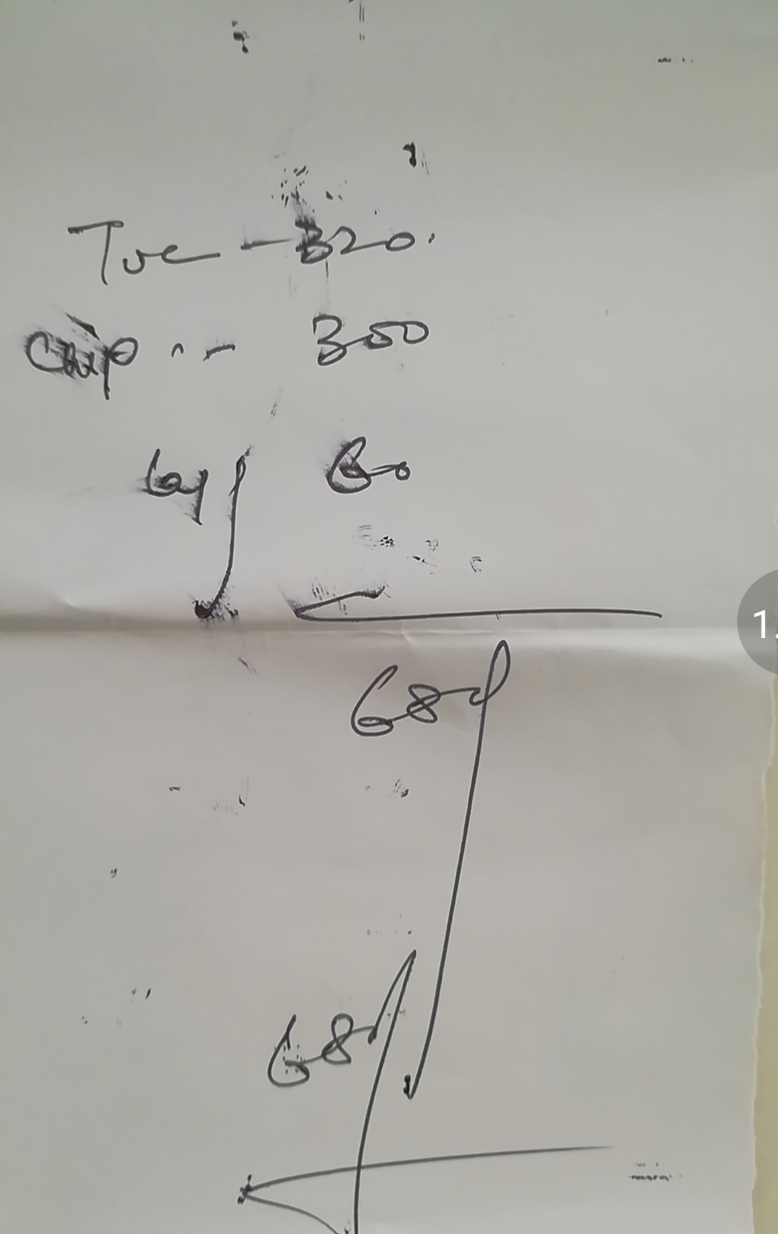 Tuc - 320.
Chip .. - 350
60
680
680
1.